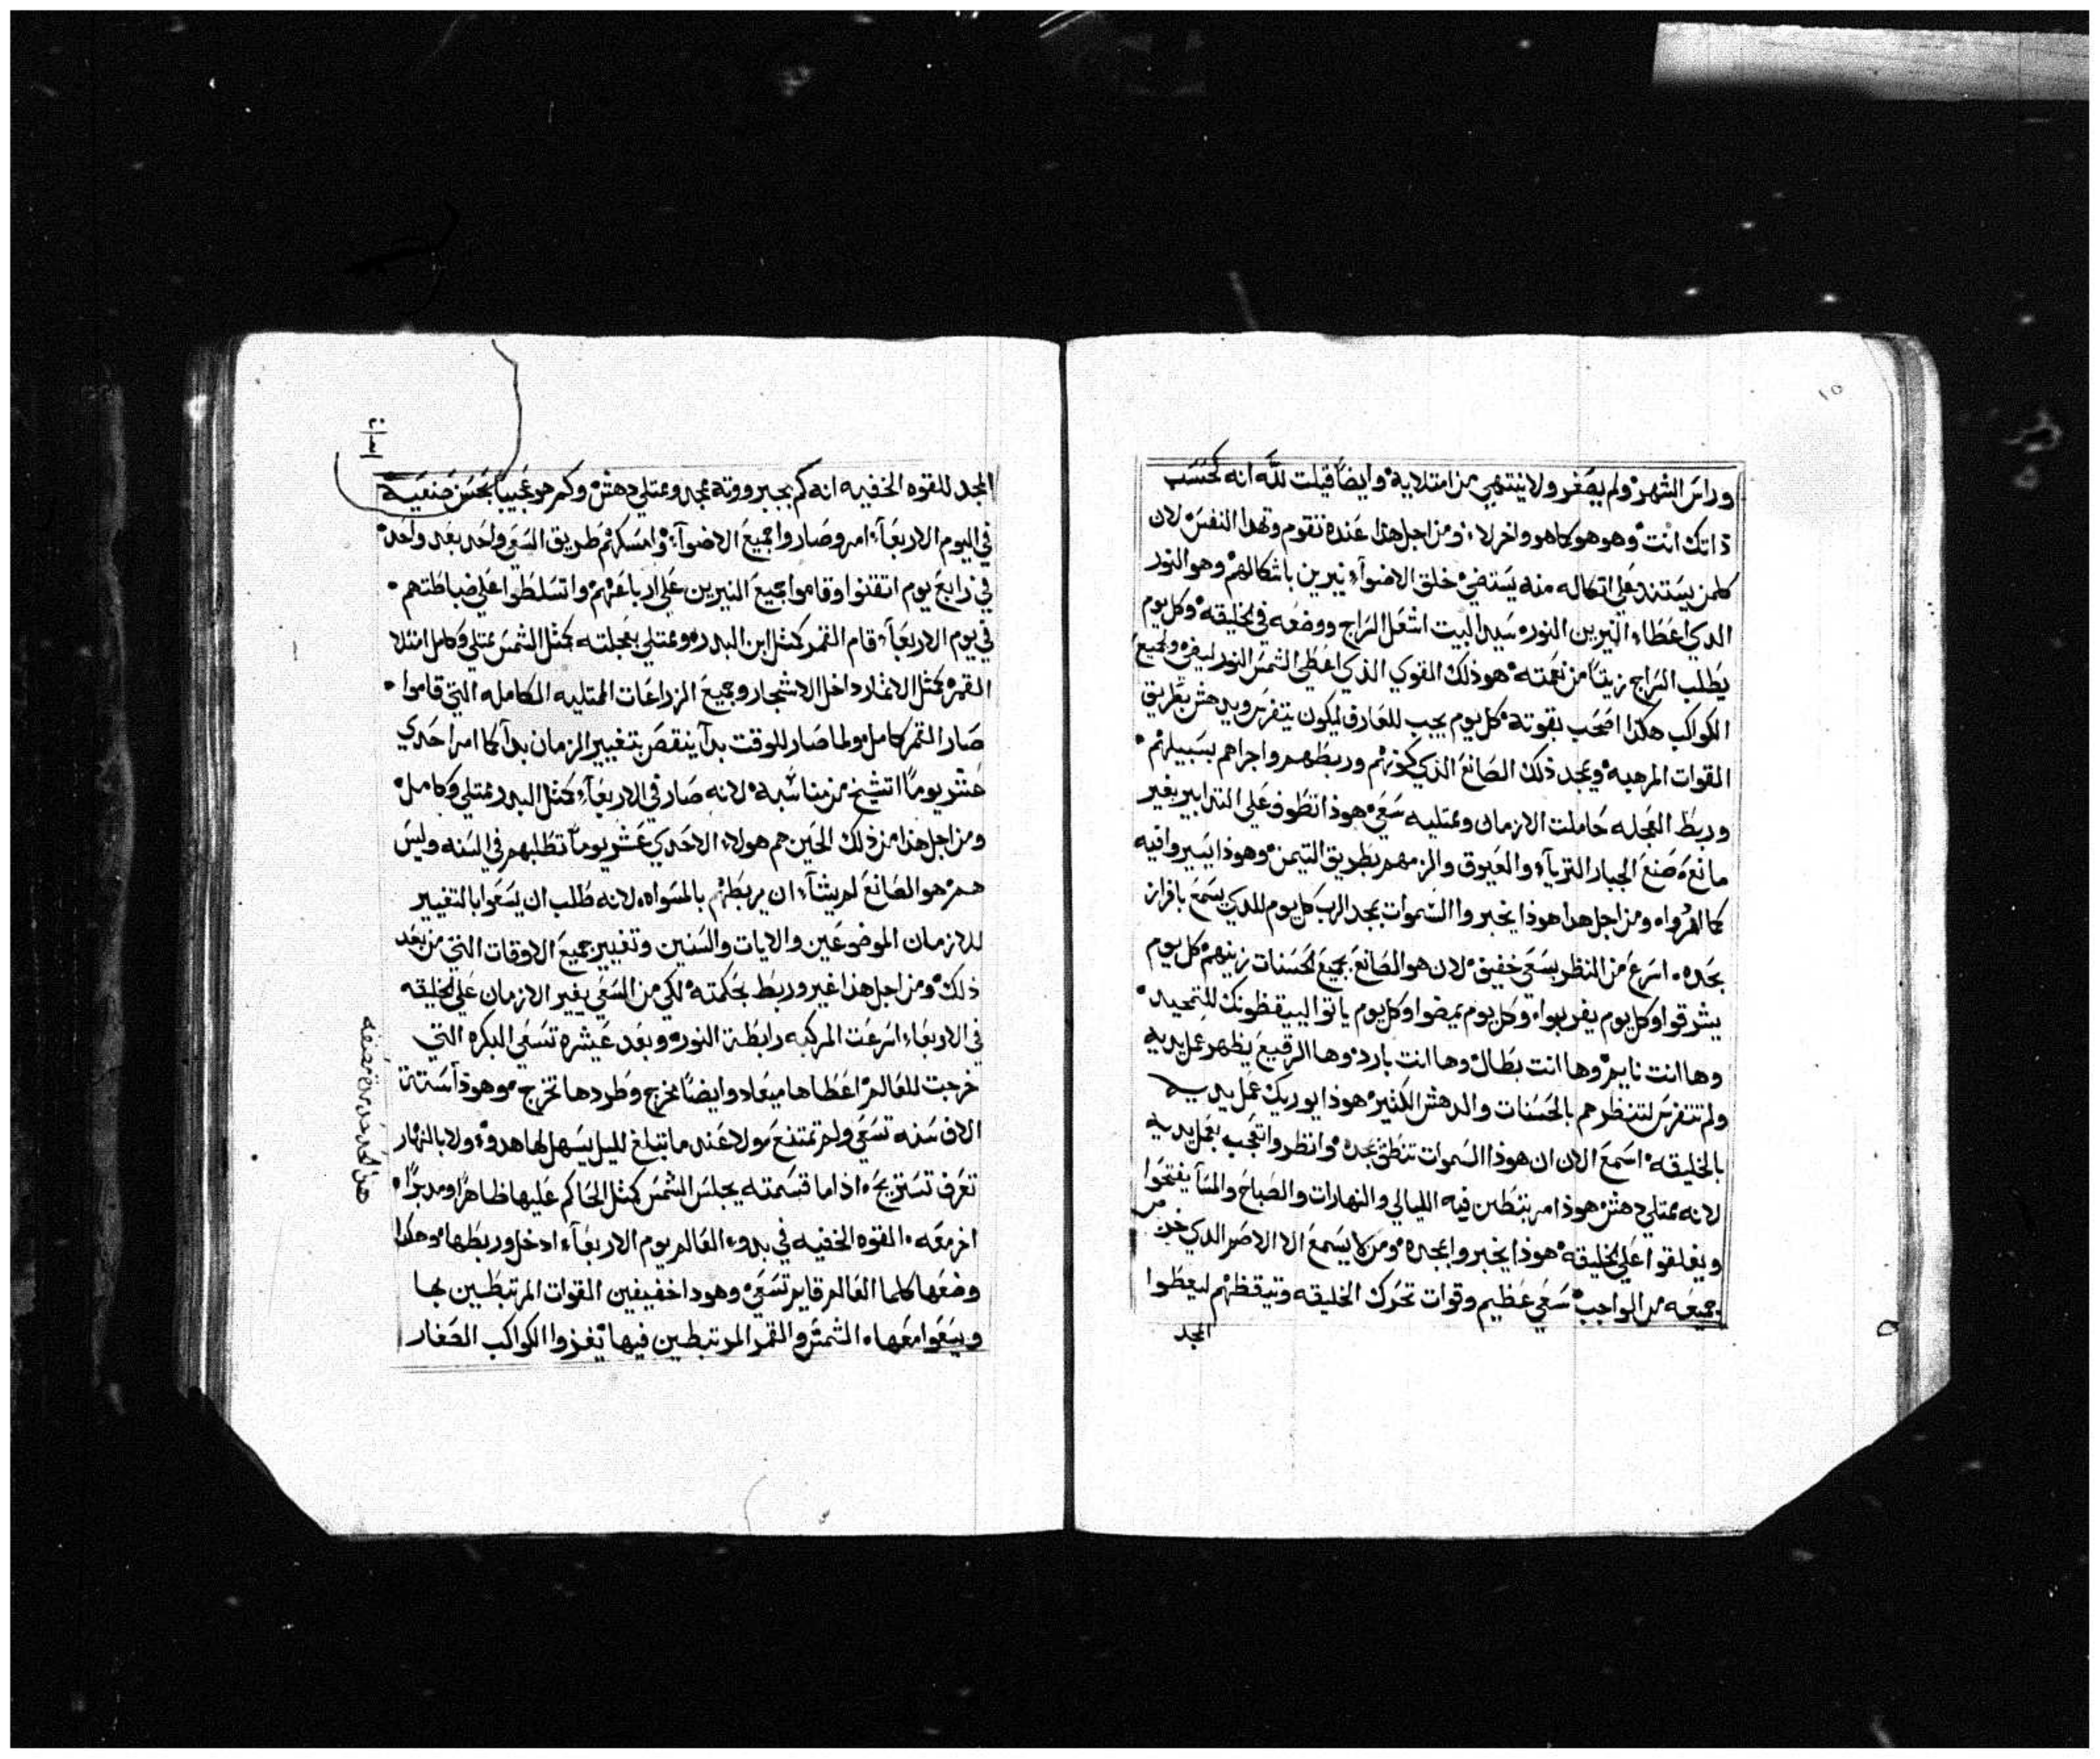 ١٥
وراس الشهر ولم يصغر ولا ينتهي من امتلايه وايضا قيلت لله انه كحسب
ذاتك انت وهو هو كما هو واخر لا ومن اجل هذا عنده نقوم وتهدا النفس لان
كلمن يستند علي اتكاله منه يستضي خلق الاضوآء نيرين باشكالهم وهو النور
الدي اعطاء النيرين النور سيد البيت اشعل السراج ووضعه في الخليقه وكل يوم
يطلب السراج زيتا من نعمته هو ذلك القوي الذي اعطي الشمس النور ليضي ولجميع
الكواكب هكدا اصحب بقوته كل يوم يجب للعارف ليكون يتفرس ويدهش بطريق
القوات المرهبه ويمجد ذلك الصانع الذي كونهم وربطهم واجراهم بسبيلهم
وربط العجله حاملت الازمان وممتليه سعي هوذا تطوف علي التدابير بغير
مانع صنع الجبار التريآء والعيوق والزمهم بطريق التيمن وهوذا يسيروا فيه
كما امروا ومن اجل هدا هوذا يخبروا السموات بمجد الرب كل يوم للدي يسمع بافراز
بحده اسرع من النظر بسعي خفيف لان هو الصانع بجميع الحسنات زينهم كل يوم
يشرقوا وكل يوم يغربوا وكل يوم يمضوا وكل يوم ياتوا ليقظونك للتمجيد
وها انت نايم وها انت بطال وها انت بارد وها الرقيع يظهر عمل يديه
ولم تتفرس لتنظرهم بالحسنات والدهش الكثير هوذا يوريك عمل يديه
بالخليقه اسمع الان ان هوذا السموات تنطق بمجده وانظر واتعجب بعمل يديه
لانه ممتلي دهش هوذا مرتبطين فيه الليالي والنهارات والصباح والمسآ يفتحوا
ويغلقوا علي الخليقه هوذا يخبروا بمجده ومن لا يسمع الا الاصم الدي خرس
جميعه من الواجب سعي عظيم وقوات تحرك الخليقه وتيقظهم ليعطوا
المجد
المجد للقوه الخفيه انه كم بجبرووته ممجد وممتلي دهش وكم هو عجيبا بحسن صنعيه
في اليوم الاربعآء امر وصاروا جميع الاضوآء وامسكهم طريق السعي واحد بعد واحد
في رابع يوم اتقنوا وقاموا جميع النيرين علي ارباعهم واتسلطوا علي ضباطتهم
في يوم الاربعآء قام القمر كمثل ابن البدر وممتلي بعجلته كمثل الشمس ممتلي وكامل امتلا
القمر كمثل الاثمار داخل الاشجار وجميع الزراعات الممتليه الكامله التي قاموا
صار القمر كامل ولما صار للوقت بدآ ينقص بتغيير الزمان بدآ كما امر احدي
عشر يوما اتشيخ من مناسبه لانه صار في الاربعآء كمثل البدر ممتلي وكامل
ومن اجل هذا من ذلك الحين هم هولاء الاحدي عشر يوما تطلبهم في السنه وليس
هم هو الصانع لم يشآء ان يربطهم بالمسواه لانه طلب ان يسعوا بالتغيير
للازمان الموضوعين والايات والسنين وتغيير جميع الاوقات التي من بعد
ذلك ومن اجل هذا غير وربط بحكمته لكي من السعي يغير الازمان علي الخليقه
في الاربعاء اسرعت المركبه رابطة النور وبعد عيشره تسعي البكره التي
خرجت للعالم اعطاها ميعاد وايضا تخرج وطردها تخرج وهوذا ستة
الاف سنه تسعي ولم تمتنع ولا عند ما تبلغ لليل يسهل لها هدوء ولا بالنهار
تعرف تستريح اذا ما قسمته يجلس الشمس كمثل الحاكم عليها ظاهرا ومدبرا
اخر معه القوه الخفيه في بدوء العالم يوم الاربعآء ادخل وربطها وهكدا
وضعها كلما العالم قايم تسعي وهودا خفيفين القوات المرتبطين بها
ويسعوا معها الشمش والقمر المرتبطين فيها يغزوا الكواكب الصغار